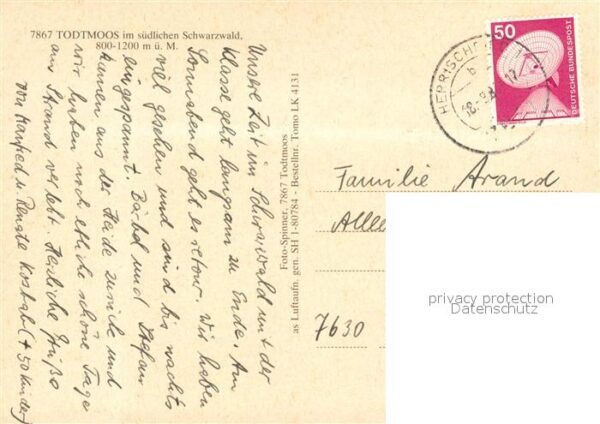 7867 TODTMOOS im südlichen Schwarzwald,
800-1200 m ü. M.
Unsere Zeit im Schwarzwald mit der
Klasse geht langsam zu Ende. Am
Sonnabend geht es retour. Wir haben
viel gesehen und sind bis nachts
eingespannt. Bärbel und Stefan
kamen aus der Heide zurück und
wir haben noch etliche schöne Tage
am Strand verlebt. Herzliche Grüße
von Manfred u. Renate (+ 50 Kinder)
Foto-Spinner, 7867 Todtmoos
as Luftaufn. gen. SH 1-80784 - Bestellnr. Tomo LK 4131
50
DEUTSCHE BUNDESPOST
HERRISCHR
b
18.-9.
17
Familie Arand
Allee
7630
privacy protection
Datenschutz